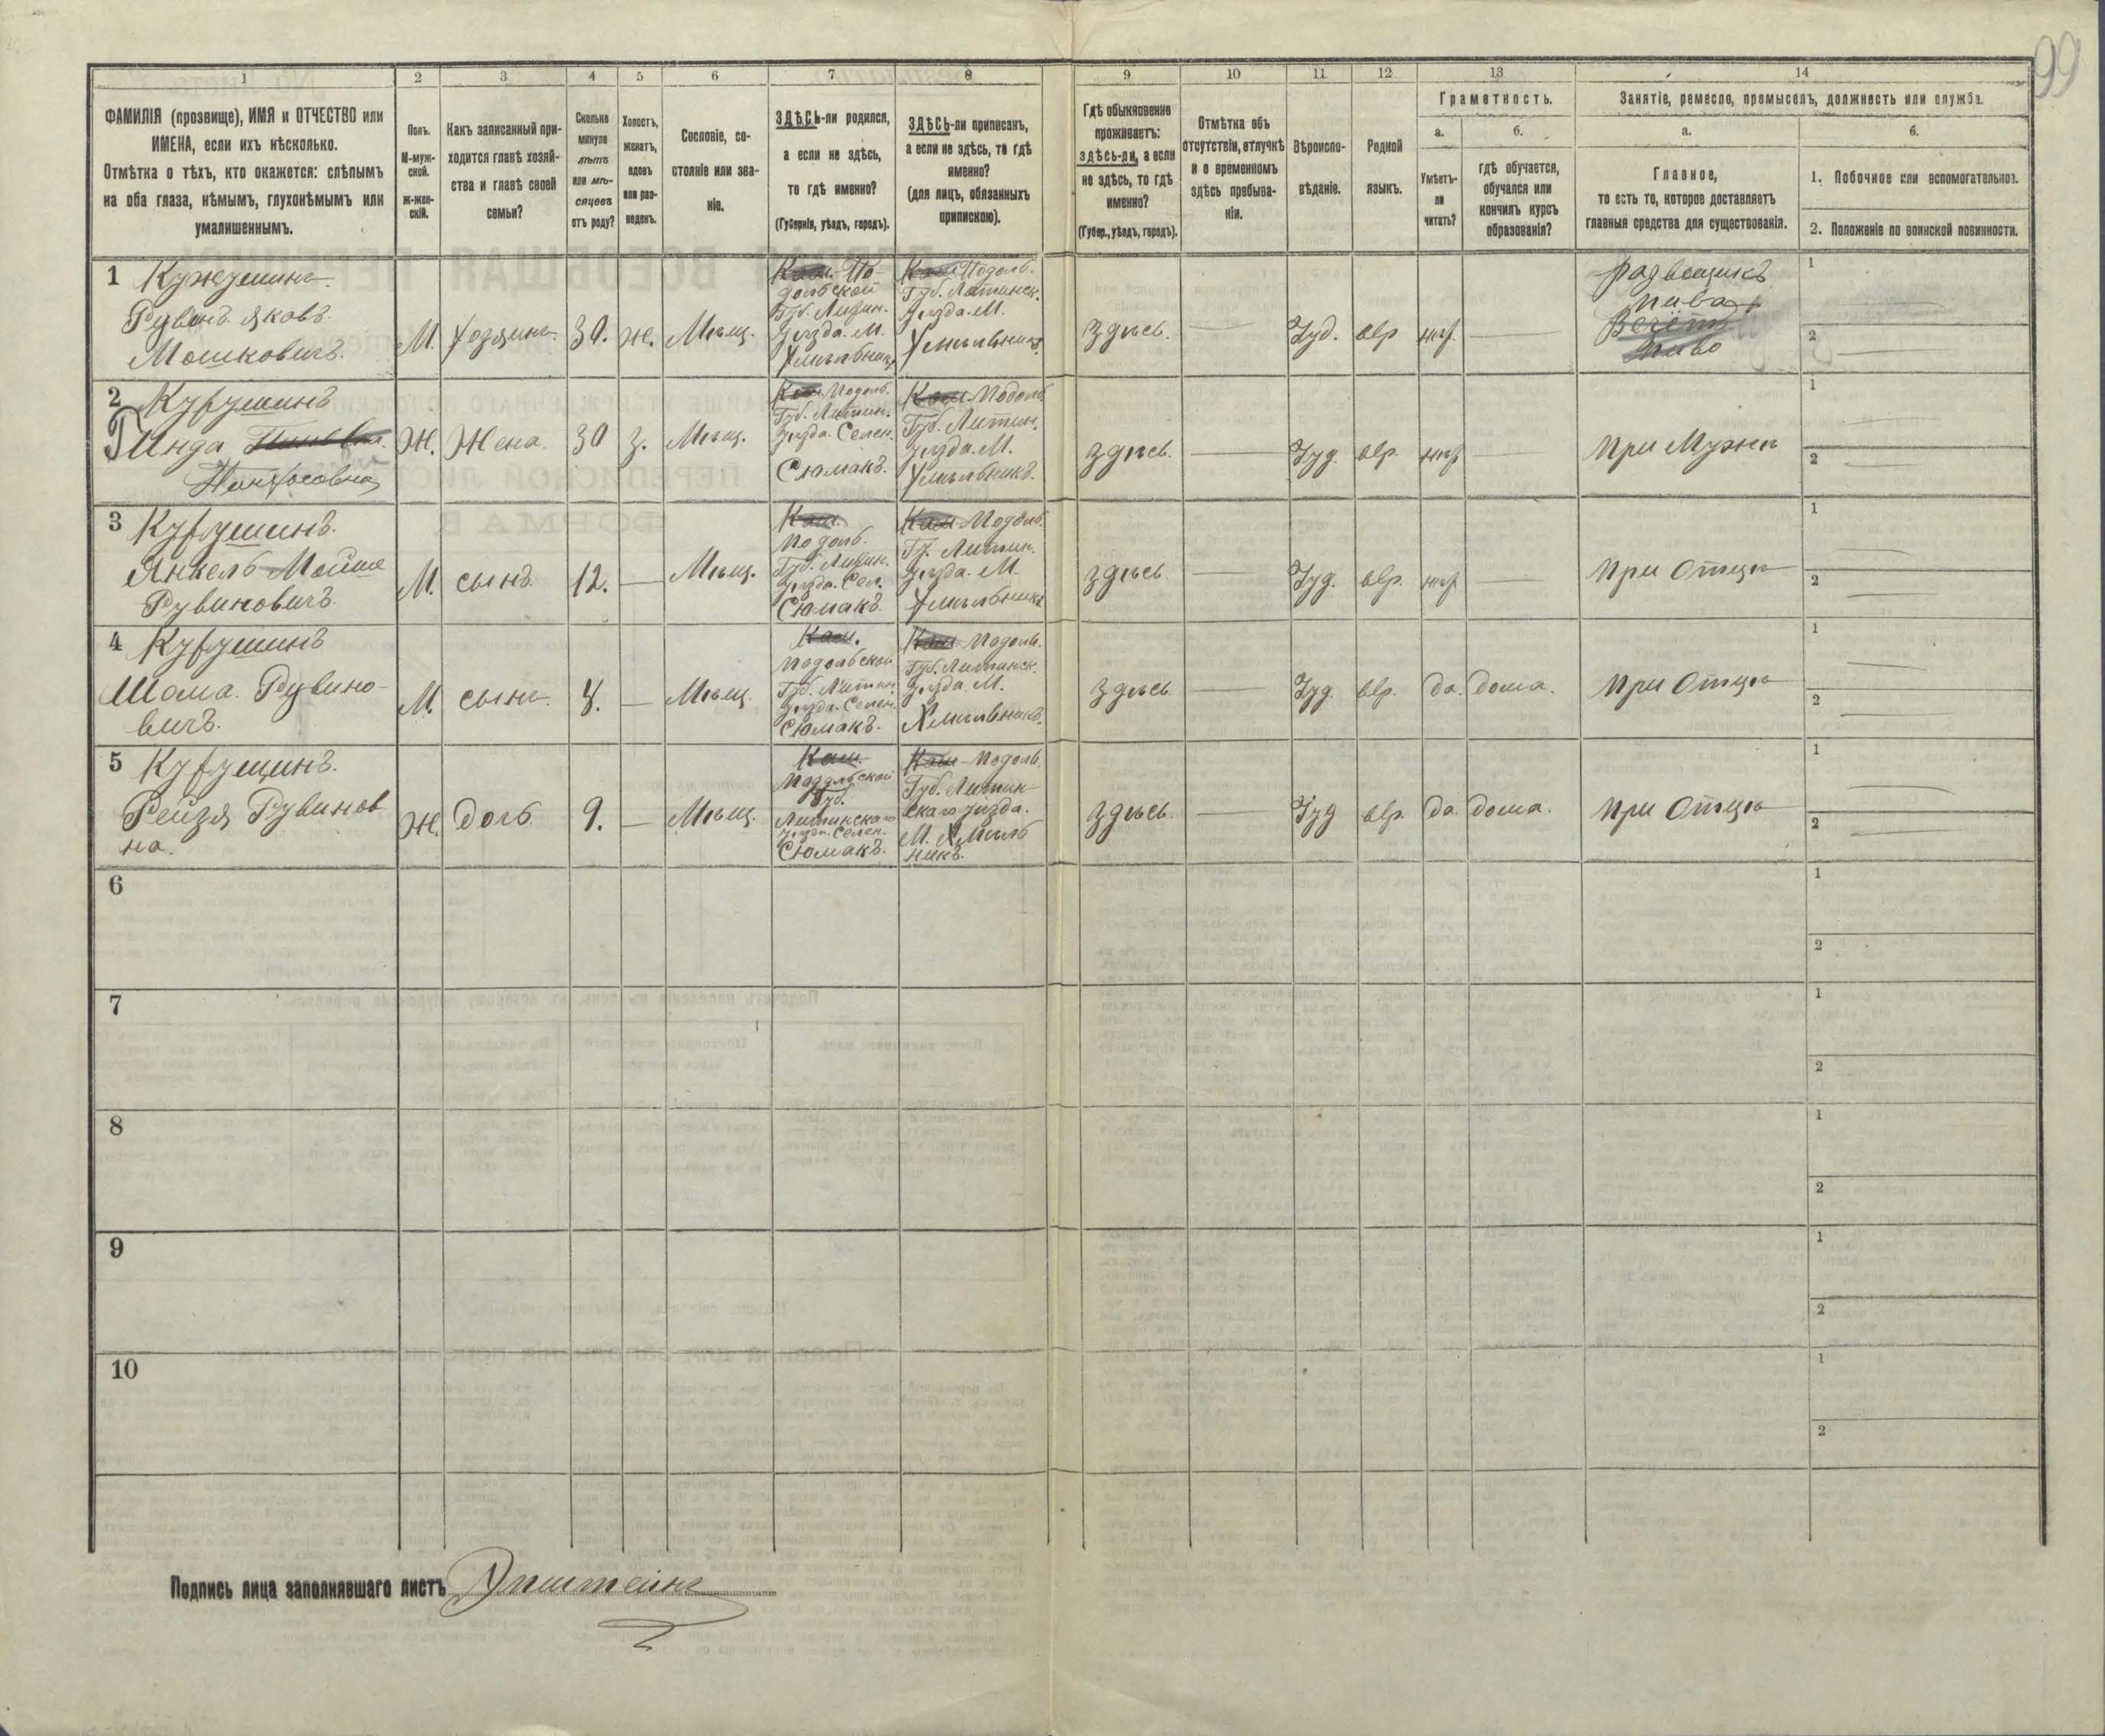 99
1
2
3
4
5
6
7
8
9
10
11
12
13
14
ФАМИЛІЯ (прозвище), ИМЯ и ОТЧЕСТВО или
ИМЕНА, если ихъ нѣсколько.
Отмѣтка о тѣхъ, кто окажется: слѣпымъ
на оба глаза, нѣмымъ, глухонѣмымъ или
умалишеннымъ.
Полъ.
М-муж-
ской.
Ж-жен-
скій.
Какъ записанный при-
ходится главѣ хозяй-
ства и главѣ своей
семьи?
Сколько
минуло
лѣтъ
или мѣ-
сяцевъ
отъ роду?
Холостъ,
женатъ,
вдовъ
или раз-
веденъ.
Сословіе, со-
стояніе или зва-
ніе.
ЗДѢСЬ-ли родился,
а если не здѣсь,
то гдѣ именно?
(Губернія, уѣздъ, городъ).
ЗДѢСЬ-ли приписанъ,
а если не здѣсь, то гдѣ
именно?
(для лицъ, обязанныхъ
припискою).
Гдѣ обыкновенно
проживаетъ:
здѣсь-ли, а если
не здѣсь, то гдѣ
именно?
(Губер., уѣздъ, городъ).
Отмѣтка объ
отсутствіи, отлучкѣ
и о временномъ
здѣсь пребыва-
ніи.
Вѣроиспо-
вѣданіе.
Родной
языкъ.
Грамотность.
а.
Умѣетъ-
ли
читать?
б.
гдѣ обучается,
обучался или
кончилъ курсъ
образованія?
Занятіе, ремесло, промыселъ, должность или служба.
а.
Главное,
то есть то, которое доставляетъ
главныя средства для существованія.
б.
1. Побочное или вспомогательное.
2. Положеніе по воинской повинности.
1
Рувинъ Яковъ
Мошковичъ.
М.
Хозяинъ.
30.
Ж.
Мѣщ.
По-
дольской
Губ. Литин.
Уѣзда. М.
Хмѣльникъ
Подольс.
Губ. Литинск.
Уѣзда. М.
Хмѣльникъ.
здѣсь.
Іуд.
евр
нѣт
Развощикъ
пива
Пиво
1
2
2
Ж.
Жена.
30
З.
Мѣщ.
Подольс.
Губ. Литин.
Уѣзда. Селен.
Сюмакъ.
Подольс.
Губ. Литин.
Уѣзда. М.
Хмѣльникъ.
здѣсь.
Іуд.
евр.
нѣт
при Мужѣ
1
2
3
Янкель-Мойше
Рувиновичъ.
М.
сынъ
12.
Мѣщ.
Подоль.
Губ. Литин.
Уѣзда. Сел.
Сюмакъ.
Подольс.
Гу. Литин.
Уѣзда. М.
Хмѣльникъ
здѣсь
Іуд.
евр.
нѣт
при Отцѣ
1
2
4
Шома. Рувино-
вичъ.
М.
сынъ.
8.
Мѣщ.
Подольской
Губ. Литин.
Уѣзда. Селен.
Сюмакъ.
Подоль.
Губ. Литинск.
Уѣзда М.
Хмѣльникъ.
здѣсь.
Іуд.
евр.
да.
дома.
при Отцѣ
1
2
5
Рейзя Рувинов
на.
Ж.
дочь
9.
Мѣщ.
Подольской
Губ.
Литинскаго
Уѣзда. Селен.
Сюмакъ.
Подоль.
Губ. Литин-
скаго уѣзда.
М. Хмѣль
никъ.
здѣсь.
Іуд
евр.
да.
дома.
при Отцѣ
1
2
6
1
2
7
1
2
8
1
2
9
1
2
10
1
2
Подпись лица заполнявшаго листъ Эпштейнъ